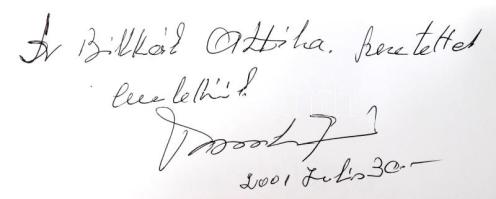 Dr Bikkái Attila. szeretettel
emlékül.
2001 Julis 30.-